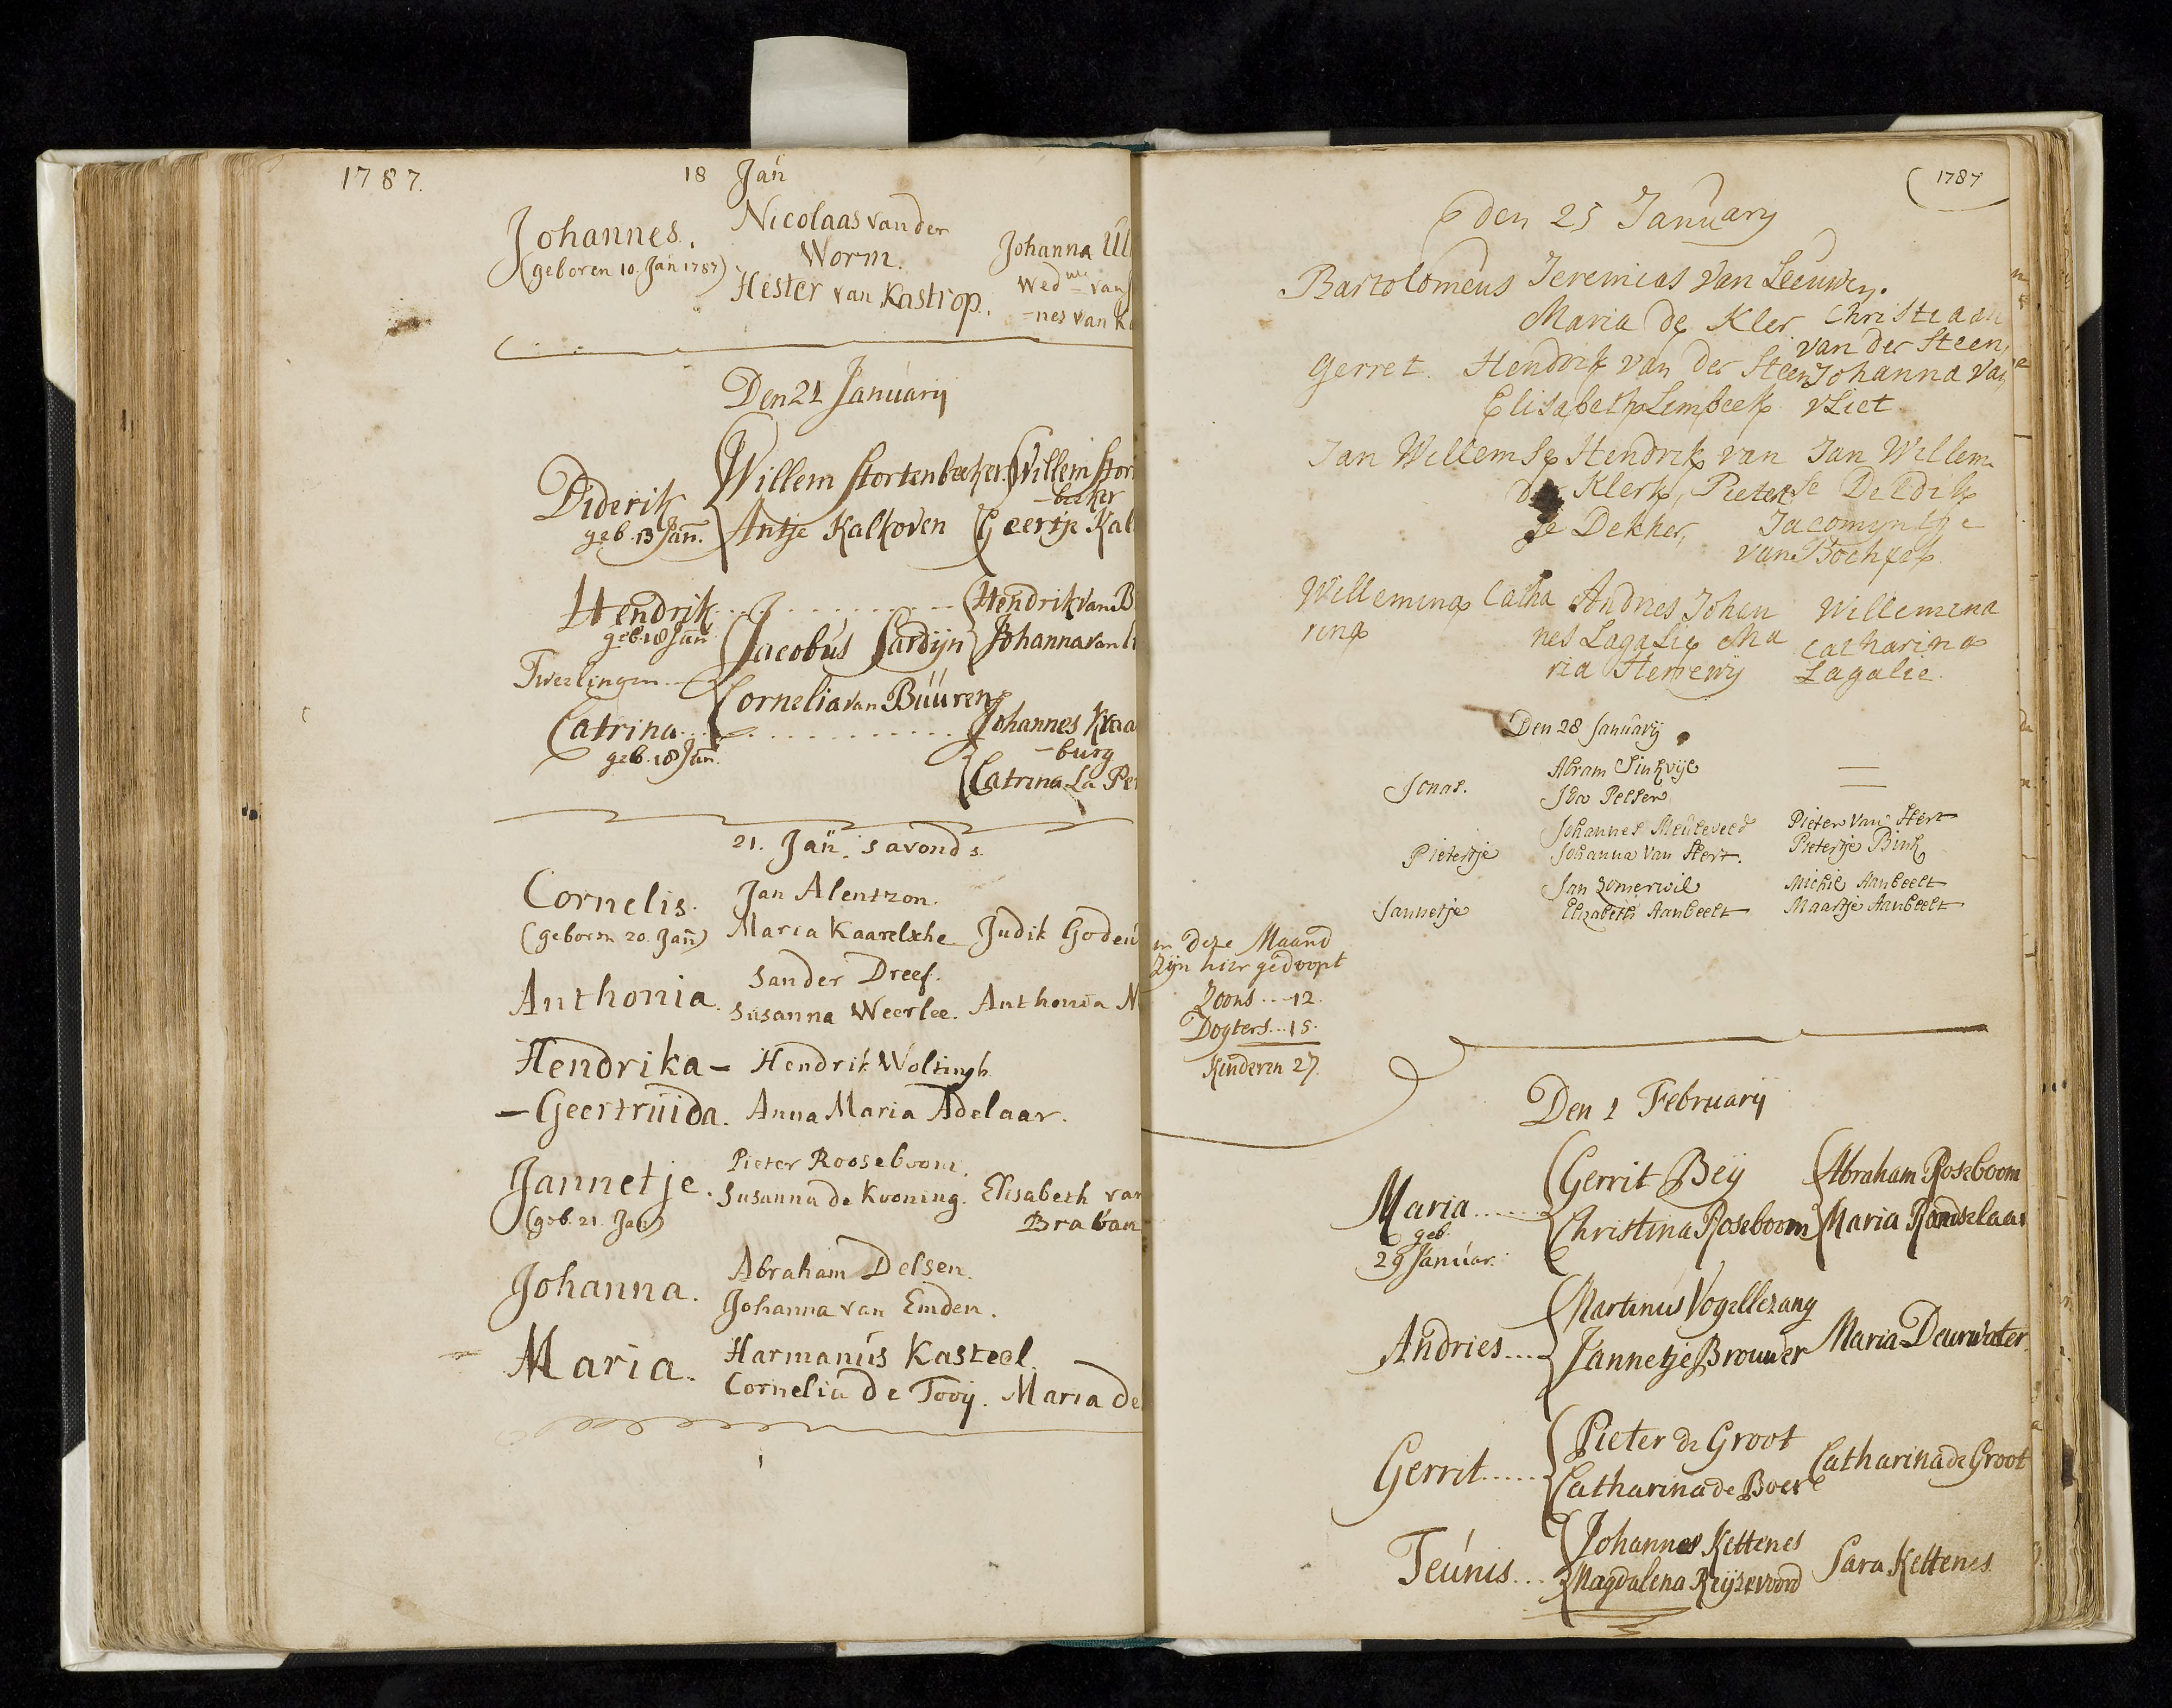 1787.
18 Jan
Johannes. Nicolaas van der
Worm. Johanna Ul
(geboren 10. Jan 1787) Hester van Kastrop. Wed van
-nes van K
Den 21 Januarij
Willem Stortenbeeker. Willem Stor
Diderik -beeker
geb. 13 Jan. Antje Kalkoven Geertje Kal
Hendrik Hendrik van B
geb. 18 Jan Jacobus Sardijn Johanna van
Tweelingen
Cornelia van Buuren
Catrina Johannes Kraa
geb. 18 Jan. -burg
Catrina La Pe
21. Jan. s avonds.
Cornelis. Jan Alentzon.
(geboren 20. Jan) Maria Kaarelsche Judik Godeu
Sander Dreef.
Anthonia. Susanna Weerlee. Anthonia N
Hendrika - Hendrik Woltingh
- Geertruida. Anna Maria Adelaar.
Pieter Rooseboom.
Jannetje. Susanna de Kooning. Elisabeth van
(geb. 21. Jan) Braban
Abraham Delsen.
Johanna. Johanna van Emden.
Harmanus Kasteel.
Maria. Cornelia de Tooy. Maria de
1787
den 25 January
Bartolomeus Jeremias van Leeuwen.
Maria de Kler Christiaan
van der Steen
Gerret. Hendrik van der Steen Johanna van
Elisabeth Limbeek vliet
Jan Willemse Hendrik van Jan Willem
de Klerk, Pieter se Deldik
je Dekker, Jacomyntje
van
Willemina Catha Andries Johan Willemina
rina nes Lagalie Ma Catharina
ria Lagalie.
Den 28 Januarij
Abram —
Jonas. Ida Pelser —
Johannes Pieter van Stert
Pietertje Johanna van Stert. Pietertje Bink
Jan Zomerwil Michil Aanbeelt
Jannetje Elizabeth Aanbeelt Maartje Aanbeelt
in deze Maand
Zyn hier gedoopt
Zoons .. 12.
Dogters .. 15.
Kinderen 27.
Den 1 February
Gerrit Beij Abraham Roseboom
Maria Christina Roseboom Maria Randselaar
geb.
29 Januar.
Martinus Vogellezang
Andries Jannetje Brouwer Maria Deurwater.
Pieter de Groot
Gerrit Catharina de Boer Catharina de Groot
Johannes Kettenes
Teunis Magdalena Reyzevoord Sara Kettenes.